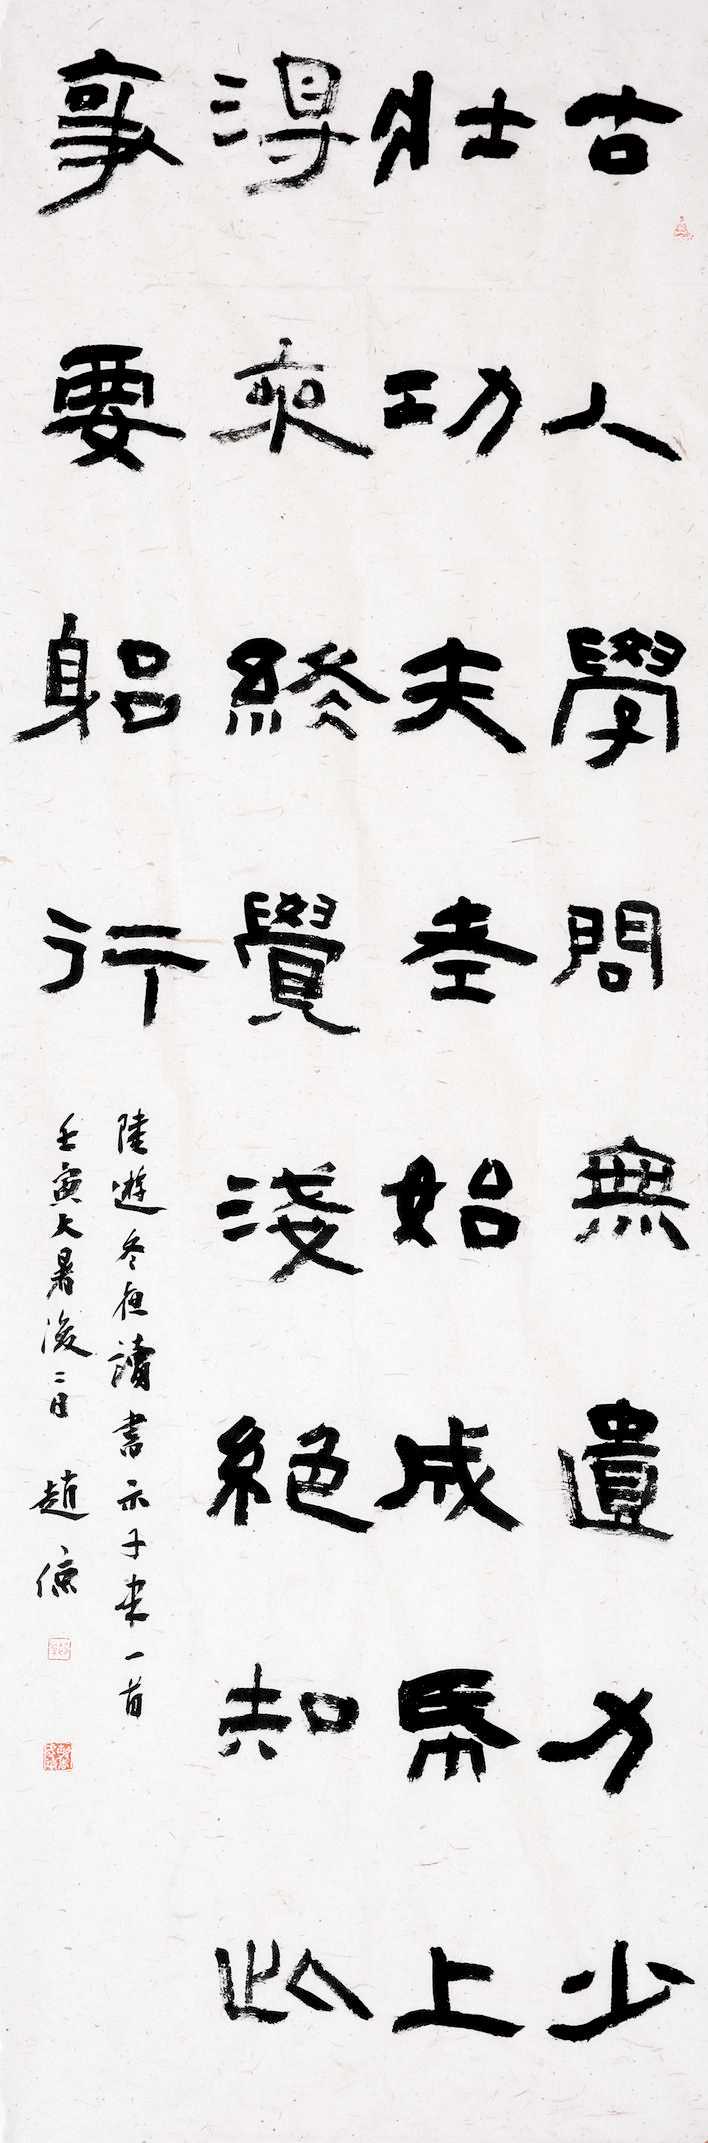 古人學問無遺力少
壯功夫老始成帋上
得來終覺淺絕知此
事要躳行
陸遊冬夜讀書示子聿一首
壬寅大暑後二日 趙